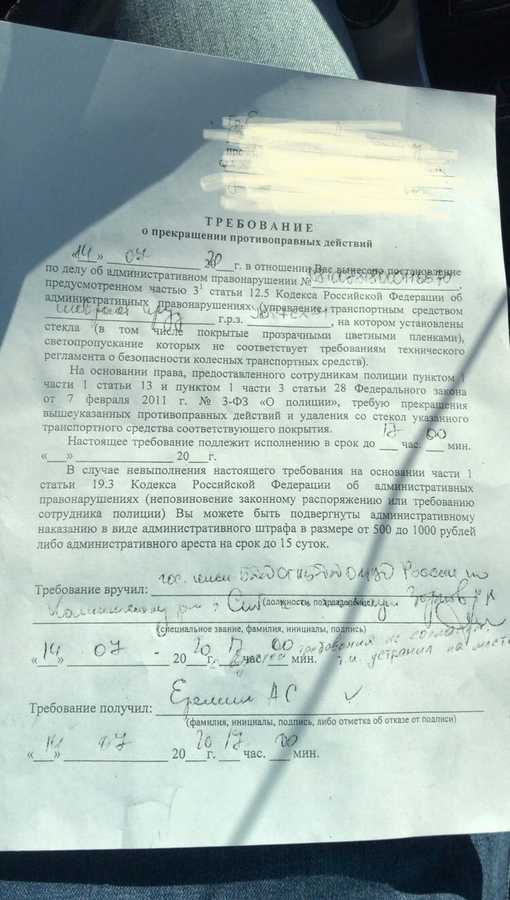 ТРЕБОВАНИЕ
о прекращении противоправных действий
«14» 07 20 г. в отношении Вас вынесено постановление
по делу об административном правонарушении №
предусмотренном частью 3¹ статьи 12.5 Кодекса Российской Федерации об
административных правонарушениях (управление транспортным средством
г.р.з. , на котором установлены
стекла (в том числе покрытые прозрачными цветными пленками),
светопропускание которых не соответствует требованиям технического
регламента о безопасности колесных транспортных средств).
На основании права, предоставленного сотрудникам полиции пунктом 1
части 1 статьи 13 и пунктом 1 части 3 статьи 28 Федерального закона
от 7 февраля 2011 г. № 3-ФЗ «О полиции», требую прекращения
вышеуказанных противоправных действий и удаления со стекол указанного
транспортного средства соответствующего покрытия.
Настоящее требование подлежит исполнению в срок до 17 час. 00 мин.
«___» ______________ 20___г.
В случае невыполнения настоящего требования на основании части 1
статьи 19.3 Кодекса Российской Федерации об административных
правонарушениях (неповиновение законному распоряжению или требованию
сотрудника полиции) Вы можете быть подвергнуты административному
наказанию в виде административного штрафа в размере от 500 до 1000 рублей
либо административного ареста на срок до 15 суток.
Требование вручил: России по
(специальное звание, фамилия, инициалы, подпись)
требования не согласен,
т.к. устранил на месте
«14» 07 20 20 г. 17 час. 00 мин.
Требование получил: Еремин АС
(фамилия, инициалы, подпись, либо отметка об отказе от подписи)
«14» 07 20 20 г. 17 час. 00 мин.